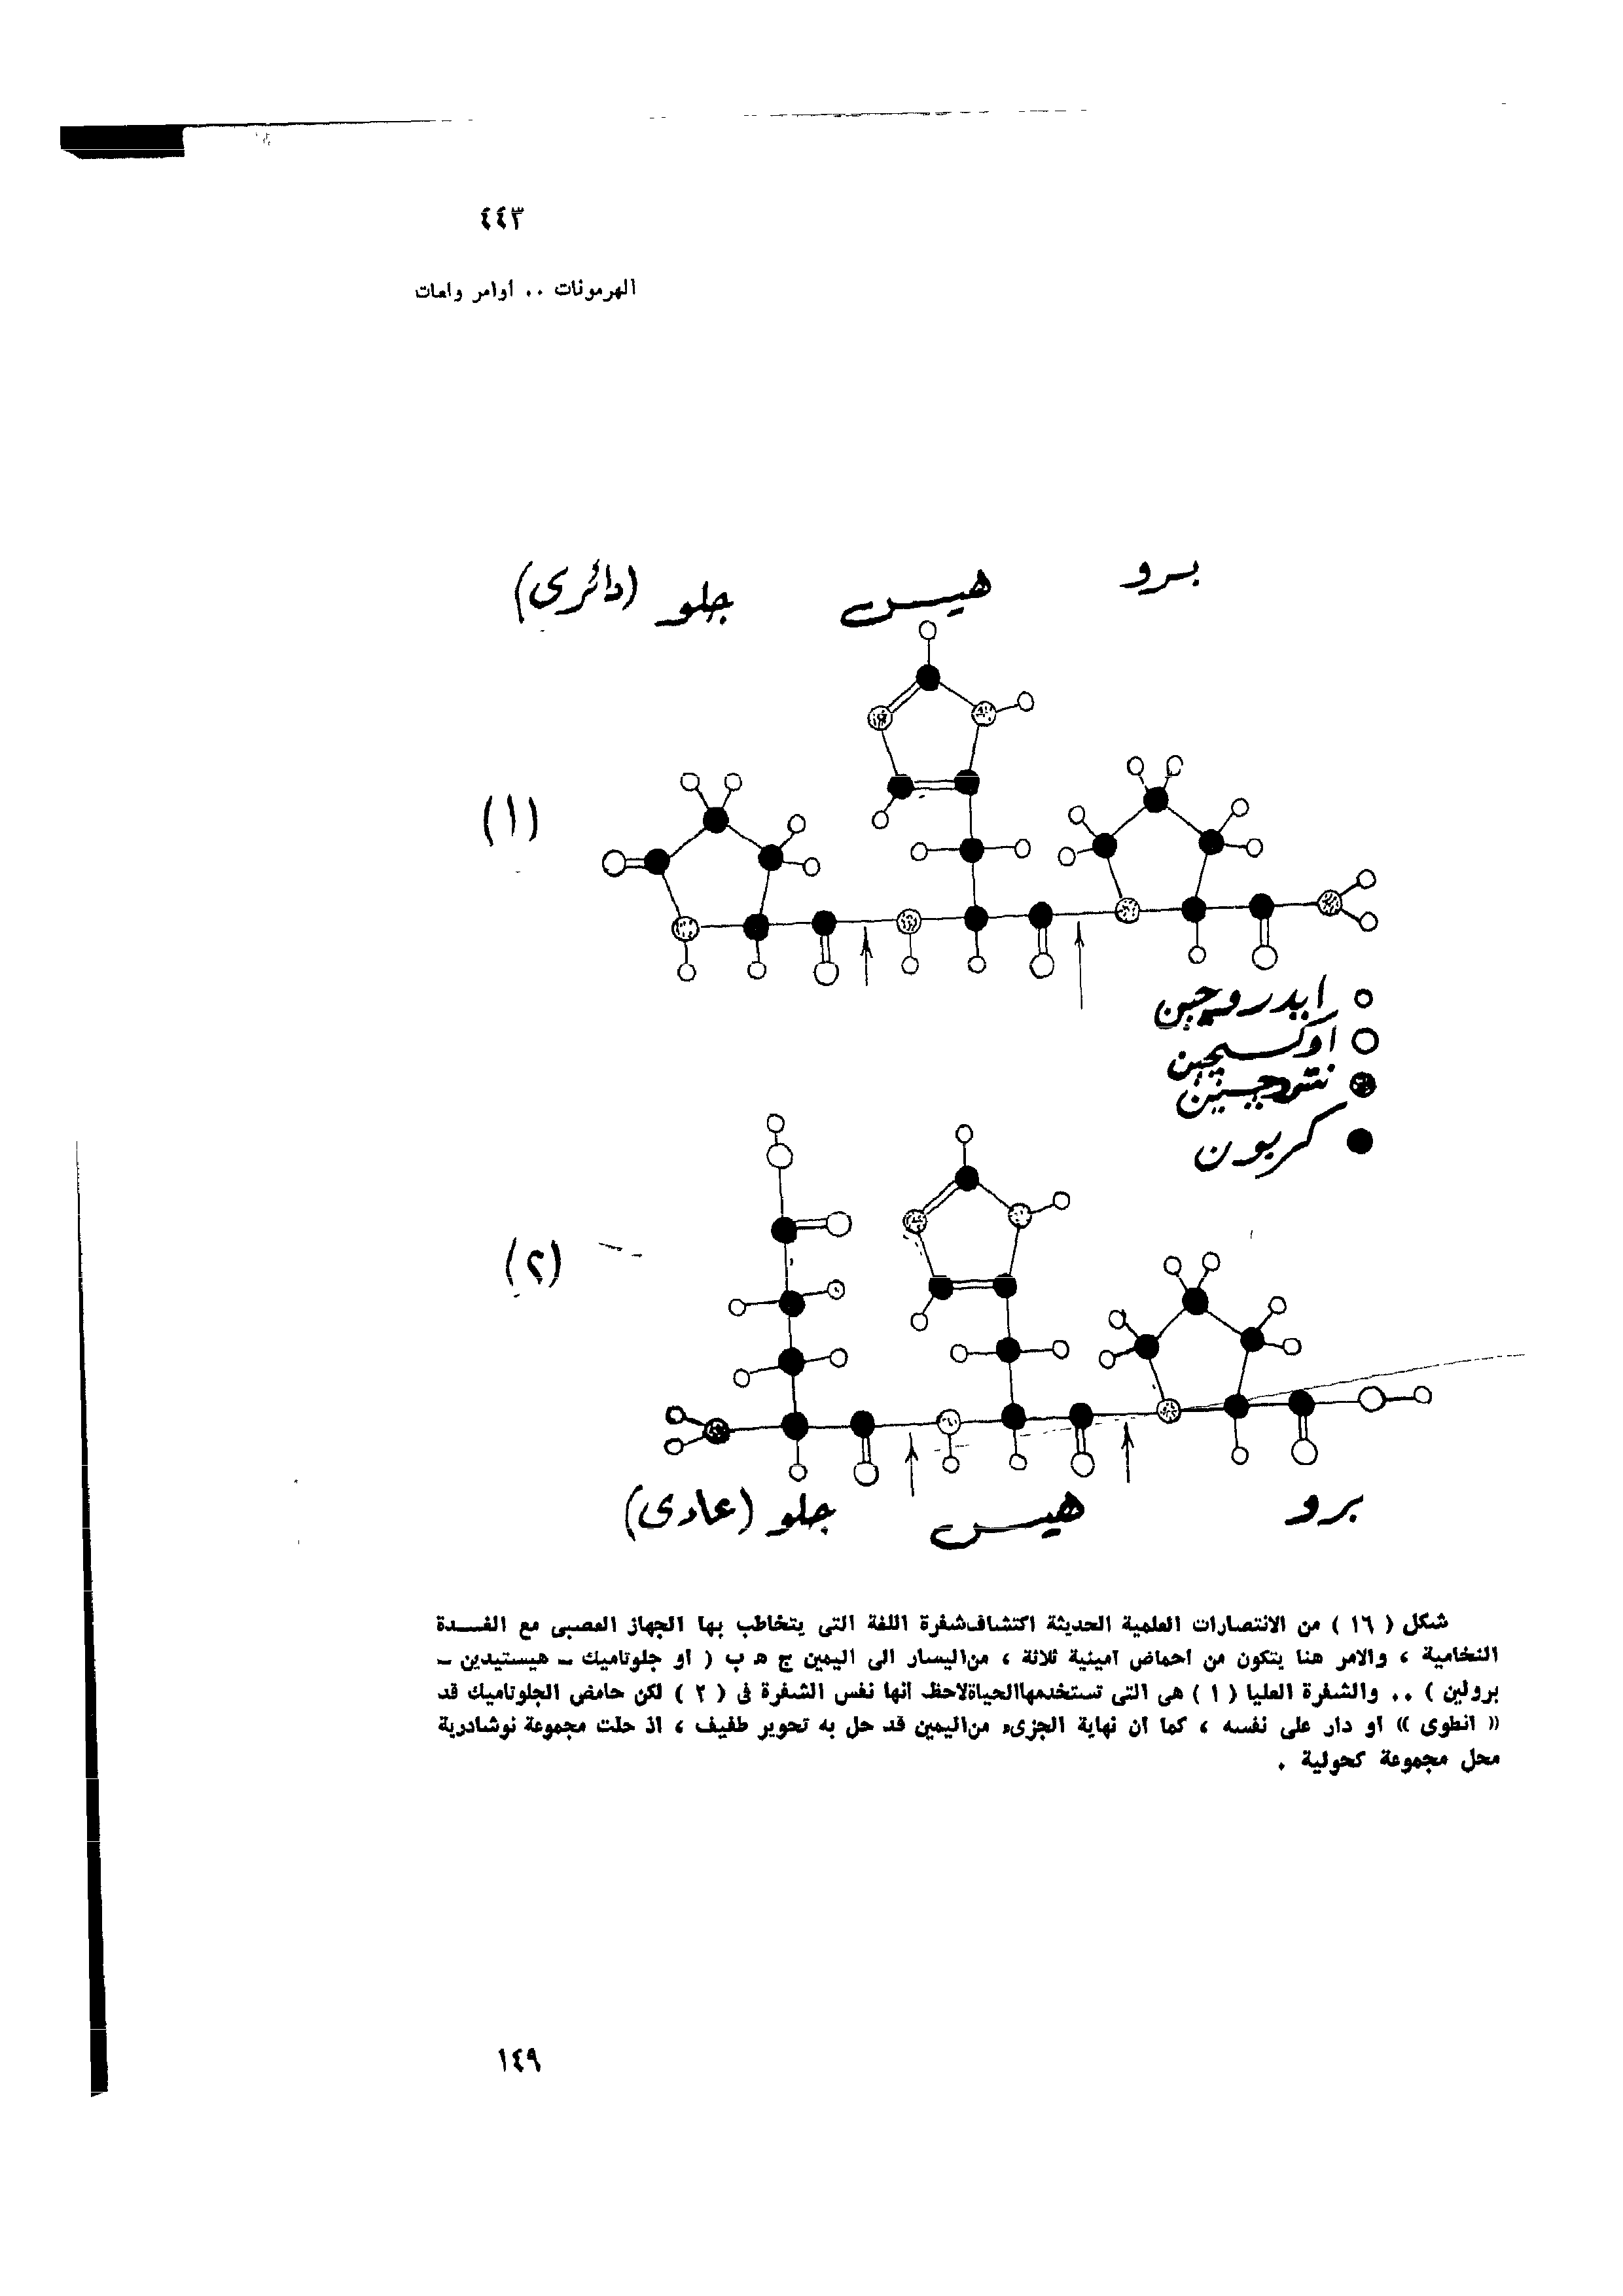 ٤٤٣
الهرمونات .. أوامر ولغات
برو
هيس
جلو (دائرى)
(١)
ايدروجين
اوكسيجين
نتروجين
كربون
(٢)
برو
هيس
جلو (عادى)
شكل ( ١٦ ) من الانتصارات العلمية الحديثة اكتشاف شفرة اللغة التى يتخاطب بها الجهاز العصبى مع الغــدة
النخامية ، والامر هنا يتكون من احماض امينية ثلاثة ، من اليسار الى اليمين ج ه ب ( او جلوتاميك ــ هيستيدين ــ
برولين ) .. والشفرة العليا ( ١ ) هى التى تستخدمها الحياة لاحظ انها نفس الشفرة فى ( ٢ ) لكن حامض الجلوتاميك قد
« انطوى » او دار على نفسه ، كما ان نهاية الجزىء من اليمين قد حل به تحوير طفيف ، اذ حلت مجموعة نوشادرية
محل مجموعة كحولية .
١٤٩